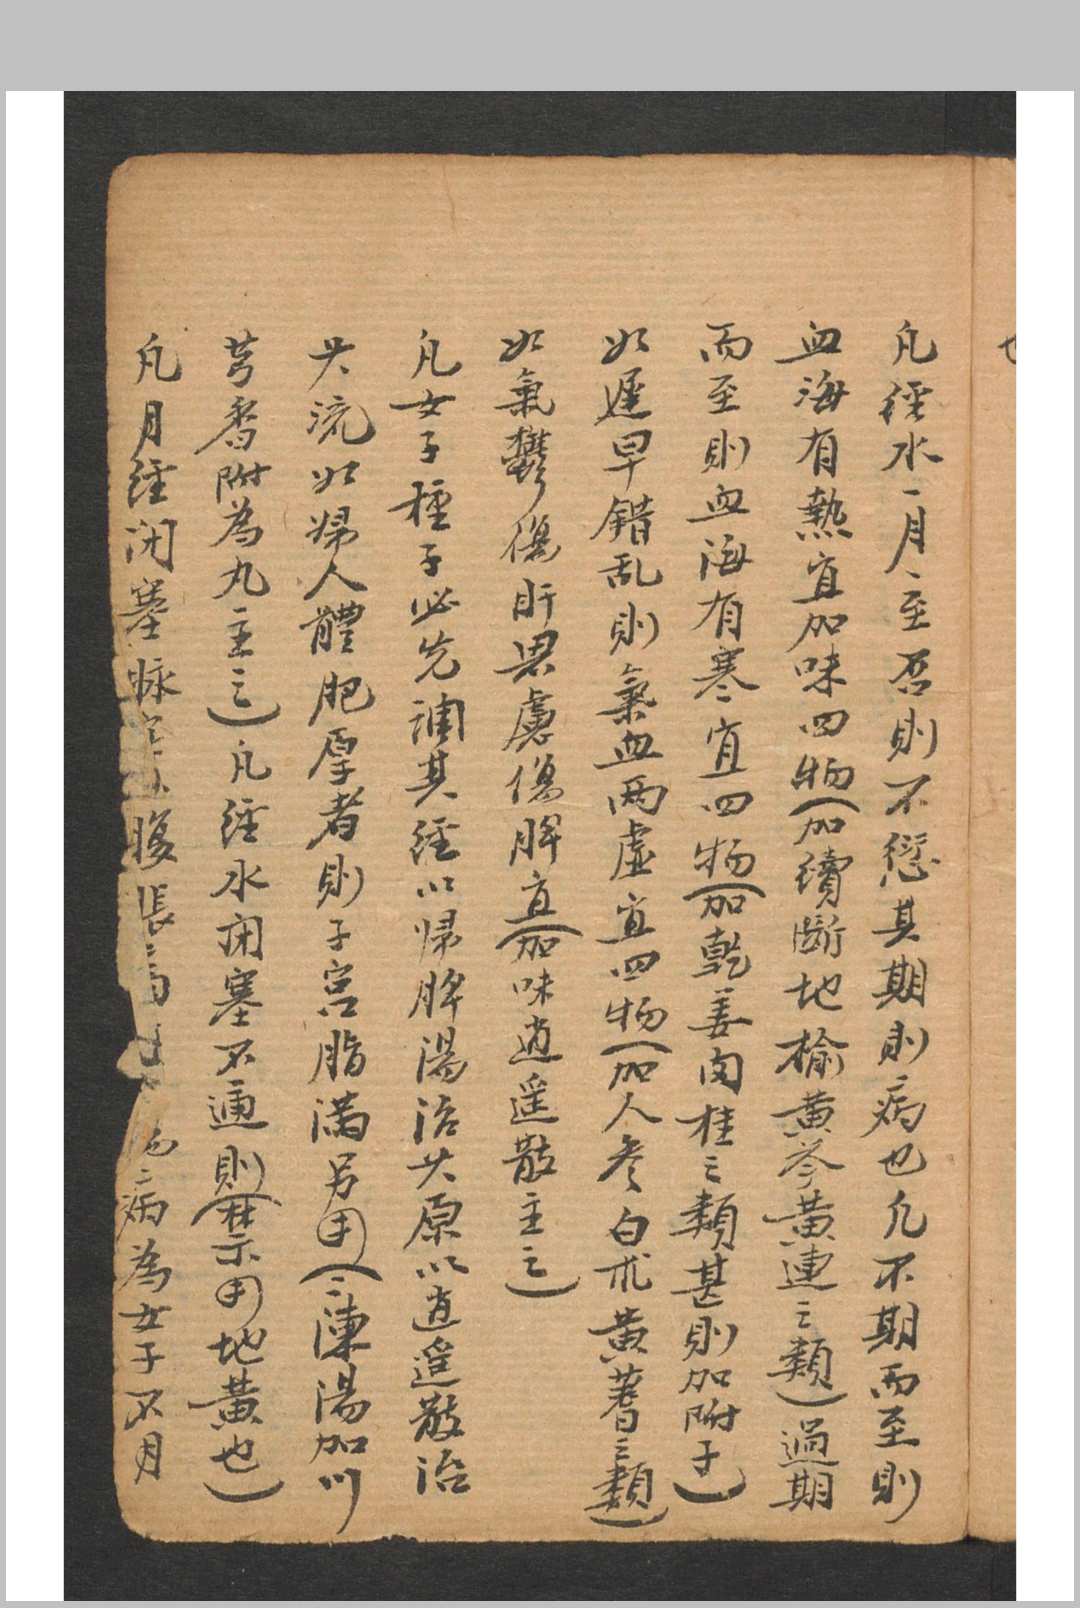 也
凡經水一月一至否則不愆其期則病也凡不期而至則
血海有熱宜加味四物(加續斷地榆黃芩黃連之類)過期
而至則血海有寒宜四物(加乾姜肉桂之類甚則加附子)
如遲早錯乱則氣血两虛宜四物(加人參白朮黃蓍之類)
如氣鬱傷肝思慮傷脾宜(加味逍遥散主之)
凡女子種子必先調其經以归脾湯治其原以逍遥散治
其流如婦人體肥厚者則子宮脂滿另用(二陳湯加川
芎香附為丸主之)凡經水闭塞不通則(禁用地黃也)
凡月經闭塞脉 腹脹 病為女子不月